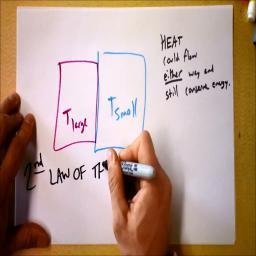 HEAT
could flow
either way and
still conserve energy.
T large
T small
2nd LAW OF TH